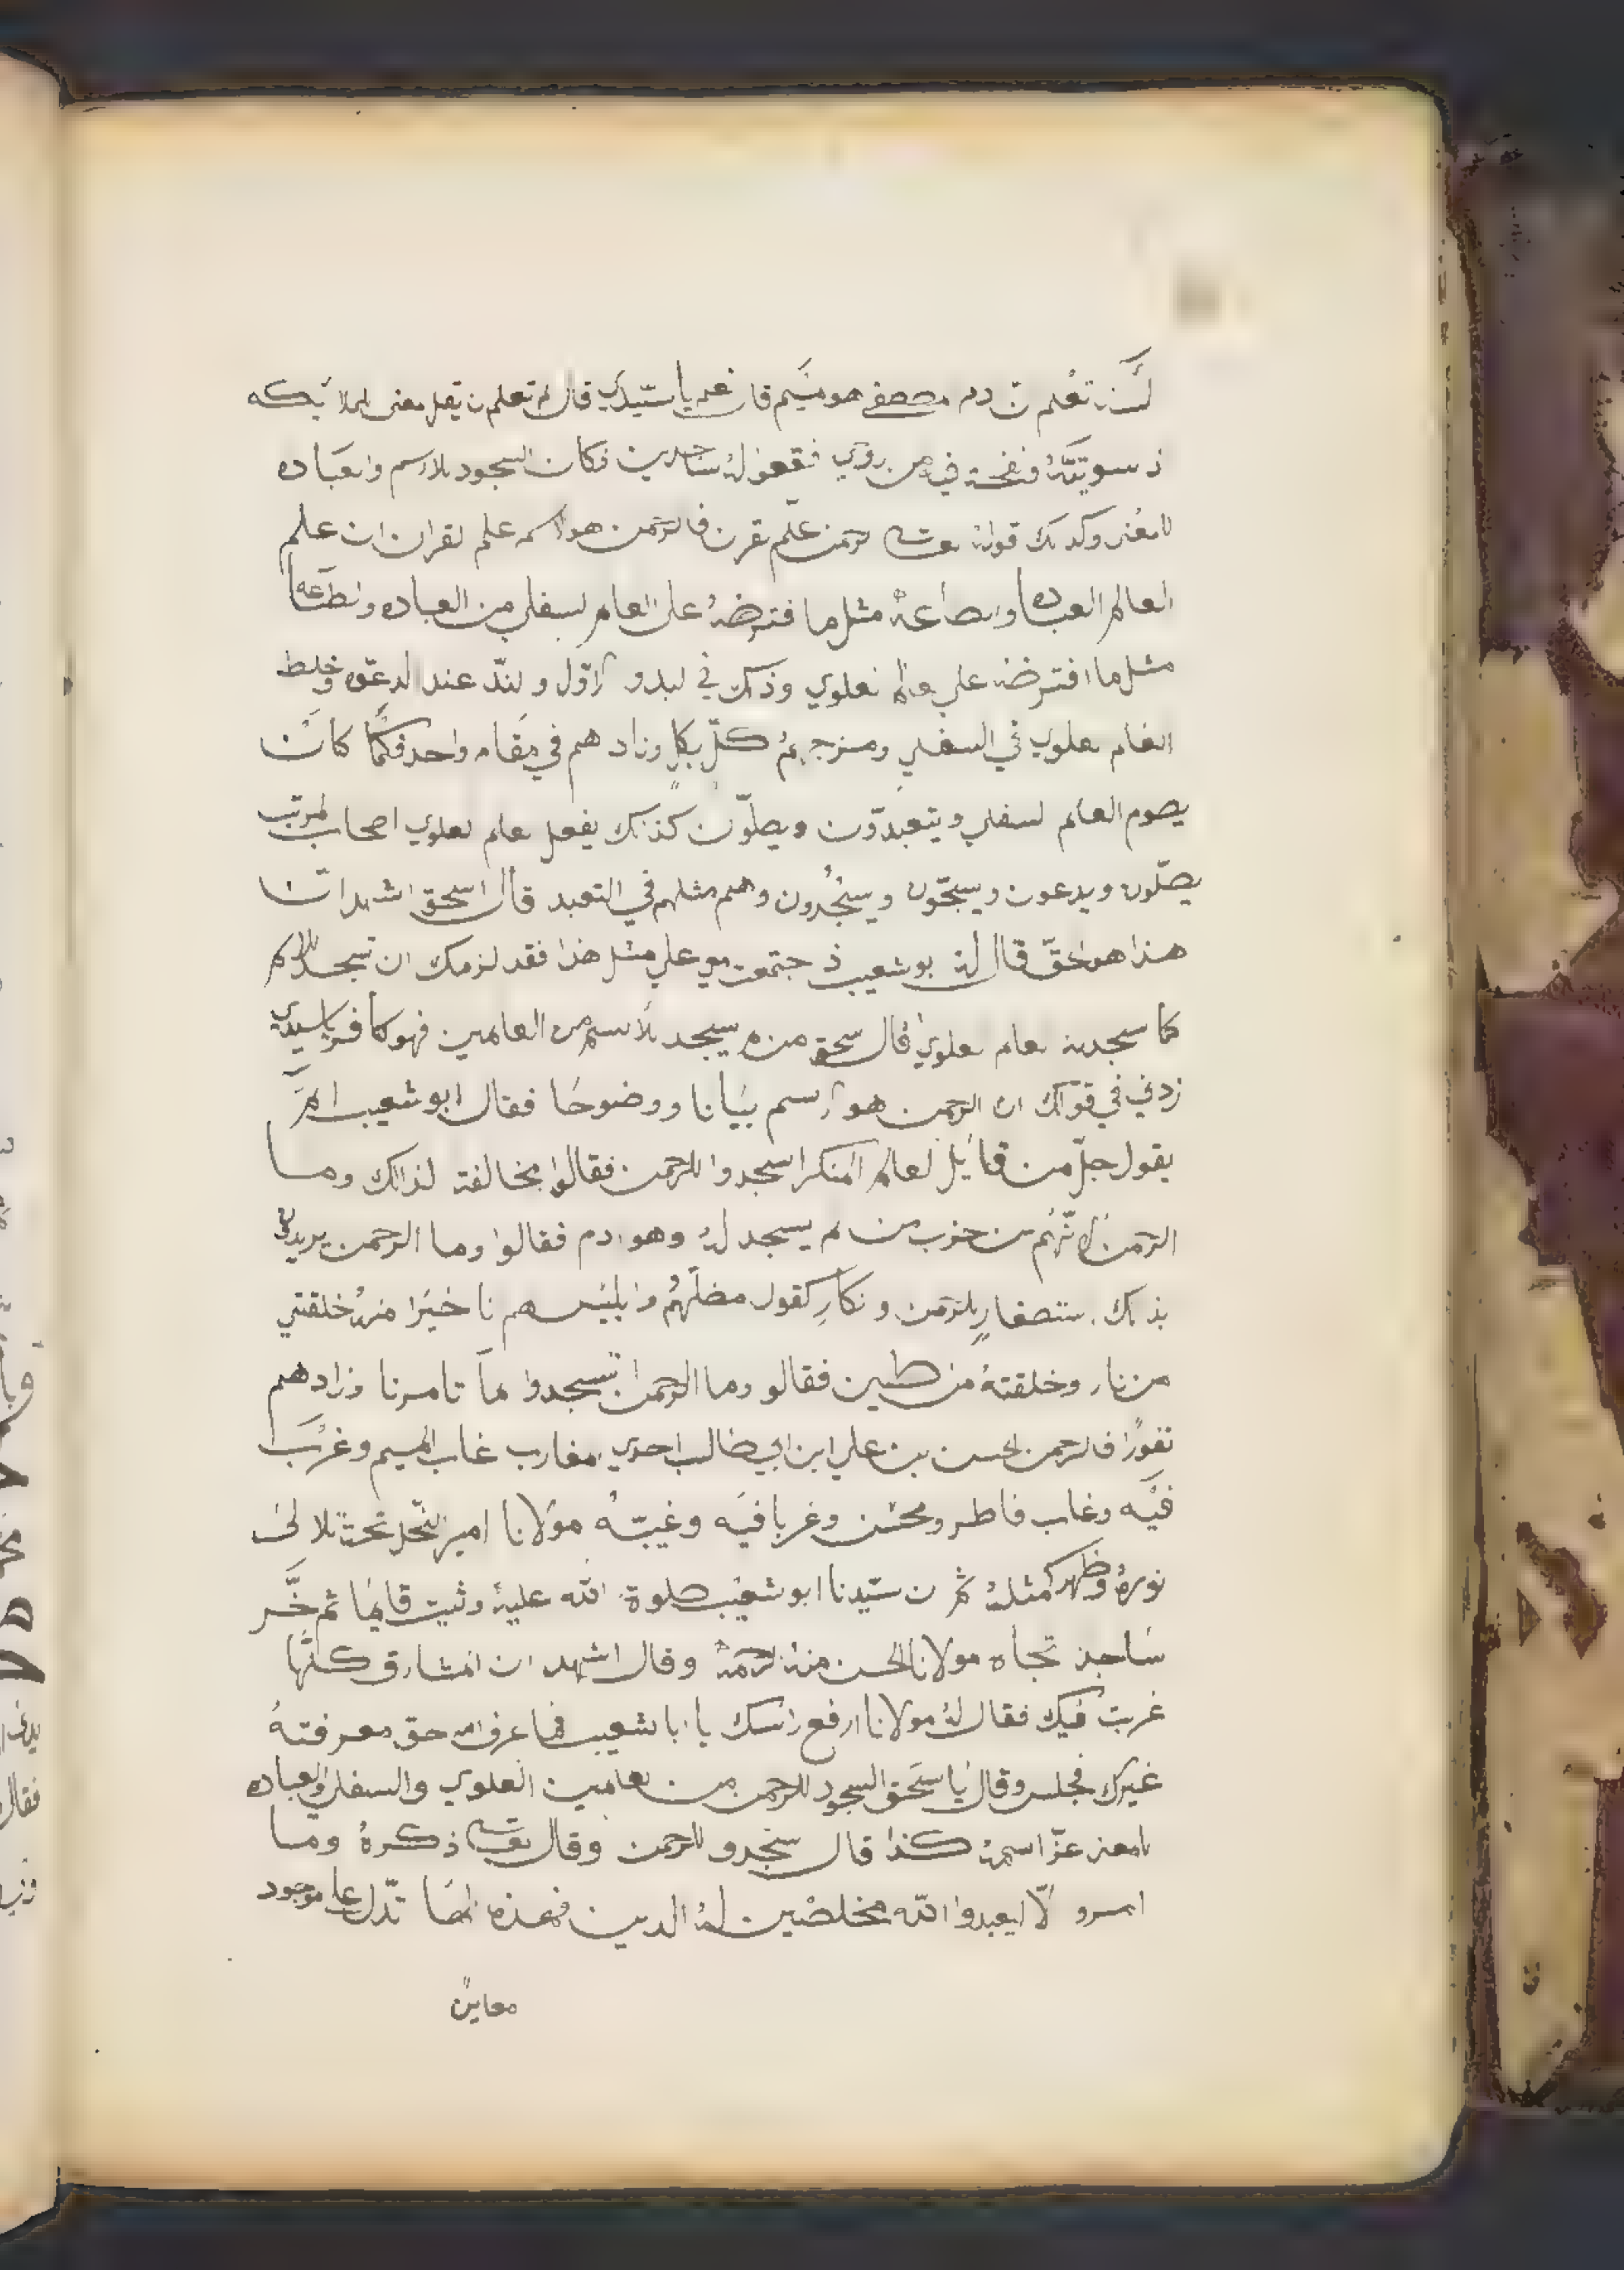 تعلم ان ادم مصطفى هو ميم قال نعم يا سيّدي قال لم تعلم ان يقل معنى للملايكه
اذ سويته ونفخت فيه من روحي فقعو له ساجدين فكان السجود للاسم والعباده
للمعنى وكذلك قوله تعالى الرحمن علّم القران فالرحمن هو اسمه علم القران ان علم
العالم العباده والطاعة مثل ما افترضه على العالم السفلي من العباده والطاعه
مثل ما افترضه علي عالم العلوي وذلك في البدو الاوّل والندّ عند الدعوه وخلط
العالم العلوي في السفلي ومزجهم كلّ بكلٍ وزادهم في مقام واحد فكما كان
يصوم العالم السفلي ويتعبدّون ويصلّون كذلك يفعل عالم العلوي اصحاب المراتب
يصلّون ويدعون ويسبحّون ويسجُدون وهم مثلهم في التعبد قال اسحق اشهد انّ
هذا هو الحقّ قال له ابو شعيب اذ اجتمعت معي علي مثل هذا فقد لزمك ان تسجد للاسم
كما سجد له عالم العلوي قال اسحق من لم يسجد للاسم من العالمين فهو كافر يا سيدي
زدني في قولك ان الرحمن هو الاسم بيانا ووضوحا فقال ابو شعيب الم
يقول جلّ من قايل لعالم المنكر اسجدوا للرحمن فقالوا مخالفة لذالك وما
الرحمن لانّهم من حزب من لم يسجد له وهو ادم فقالوا وما الرحمن يريدون
بذلك استصغارٍ بالرحمن وانكارٍ كقول مضلّهم وابليسهم انا خيرا منه خلقتني
من نار وخلقته من طين فقالو وما الرحمن انسجدوا لما تامرنا وزادهم
نفورًا فالرحمن الحسن بن علي ابن ابي طالب احدي المغارب غاب الميم وغرب
فيه وغاب فاطر ومحسن وغربا فيه وغيبته مولانا امير النحل تحت تلالئ
نوره وظهر كمثله ثم ان سيّدنا ابو شعيب صلوة الله عليه وثبت قايما ثم خّر
ساجد تجاه مولانا الحسن منه الرحمة وقال اشهد ان المشارق كلّها
غربت فيك فقال له مولانا ارفع راسك يا ابا شعيب فما عرف الله حق معرفته
غيرك فجلس وقال يا اسحق السجود للرحمن من العالمين العلوي والسفلي والعباده
للمعنى عزّ اسمه كذا قال اسجدو للرحمن وقال تعالى ذكره وما
امرو الّا ليعبدوا الله مخلصين له الدين فهذه الها تدّل على موجود
معاين